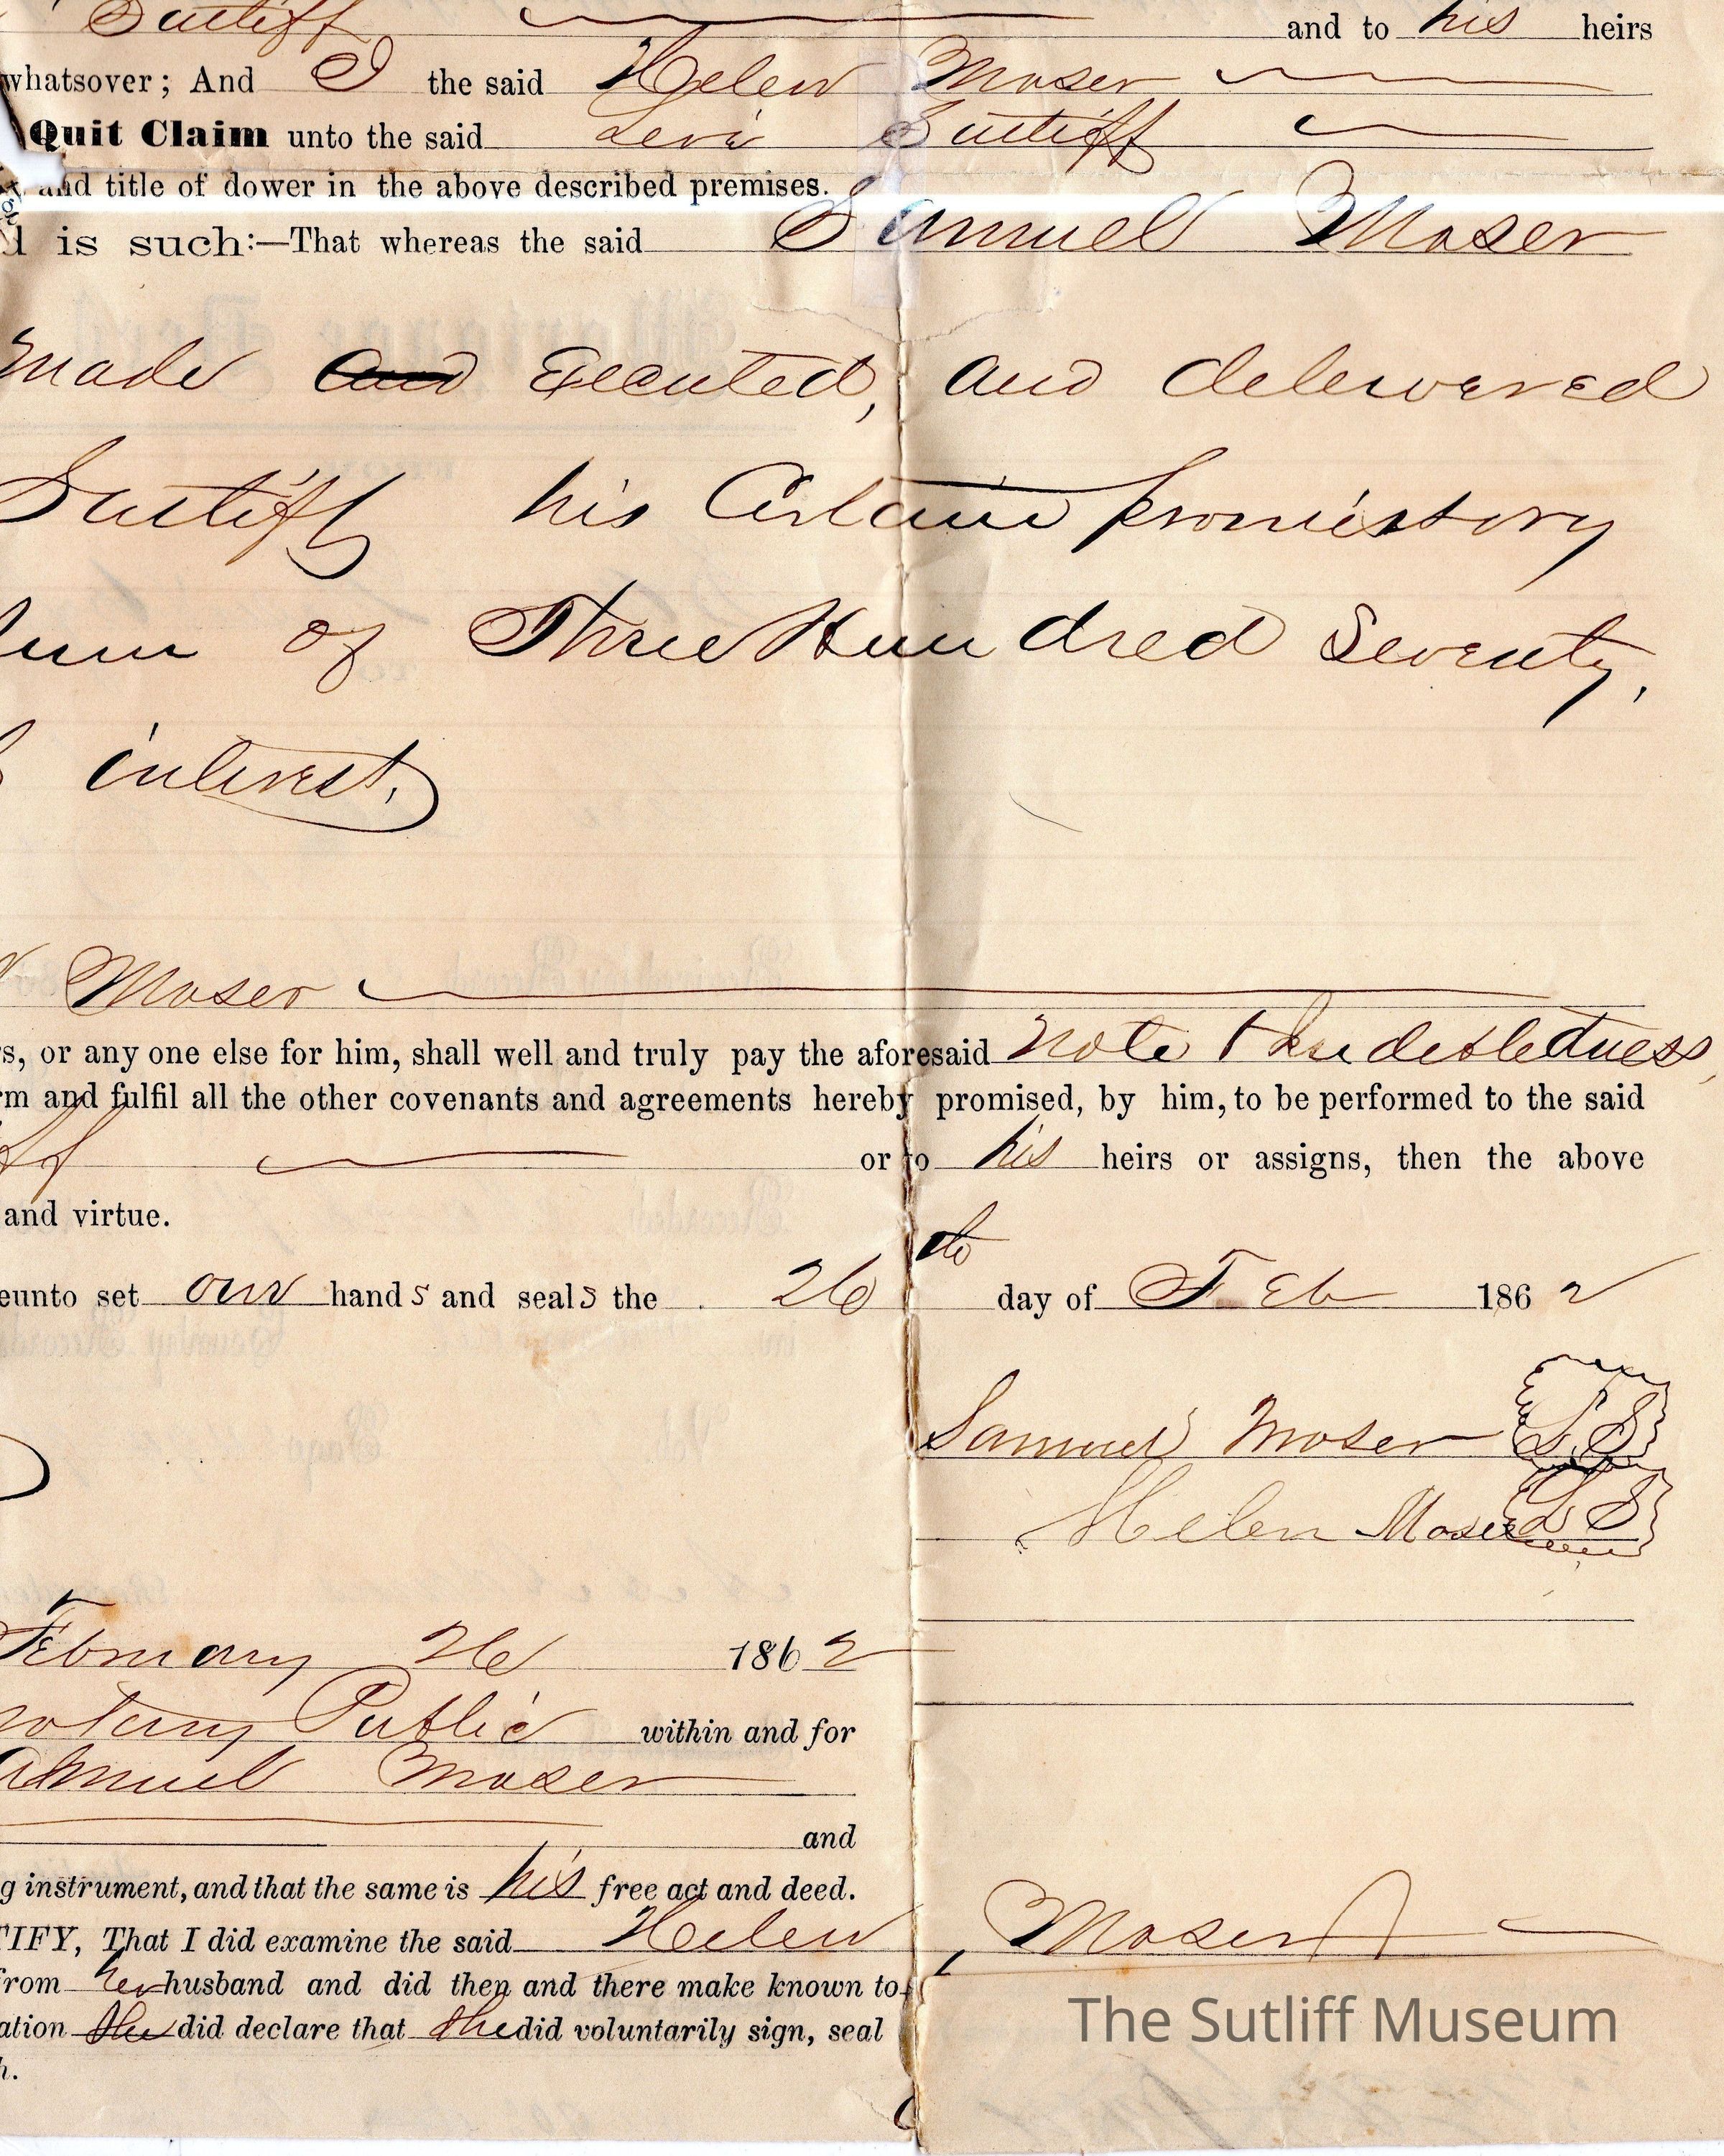 Sutliff and to his heirs
whatsover; And I the said Helen Moser
Quit Claim unto the said Levi Sutliff
and title of dower in the above described premises.
d is such:—That whereas the said Samuel Moser
made and Executed, and delewered
Sutliff his Certain promissory
sum of Three Hundred Seventy,
interest.
Moser
rs, or any one else for him, shall well and truly pay the aforesaid note & Indebtedness,
rm and fulfil all the other covenants and agreements hereby promised, by him, to be performed to the said
ff or to his heirs or assigns, then the above
and virtue.
eunto set our hands and seals the 26th day of Feb 1862
Samuel Moser L.S
Helen Moser L S
February 26 1862
notary Public within and for
amuel Moser
and
g instrument, and that the same is his free act and deed.
TIFY, That I did examine the said Helen Moser
from her husband and did then and there make known to
ation she did declare that she did voluntarily sign, seal
h.
The Sutliff Museum